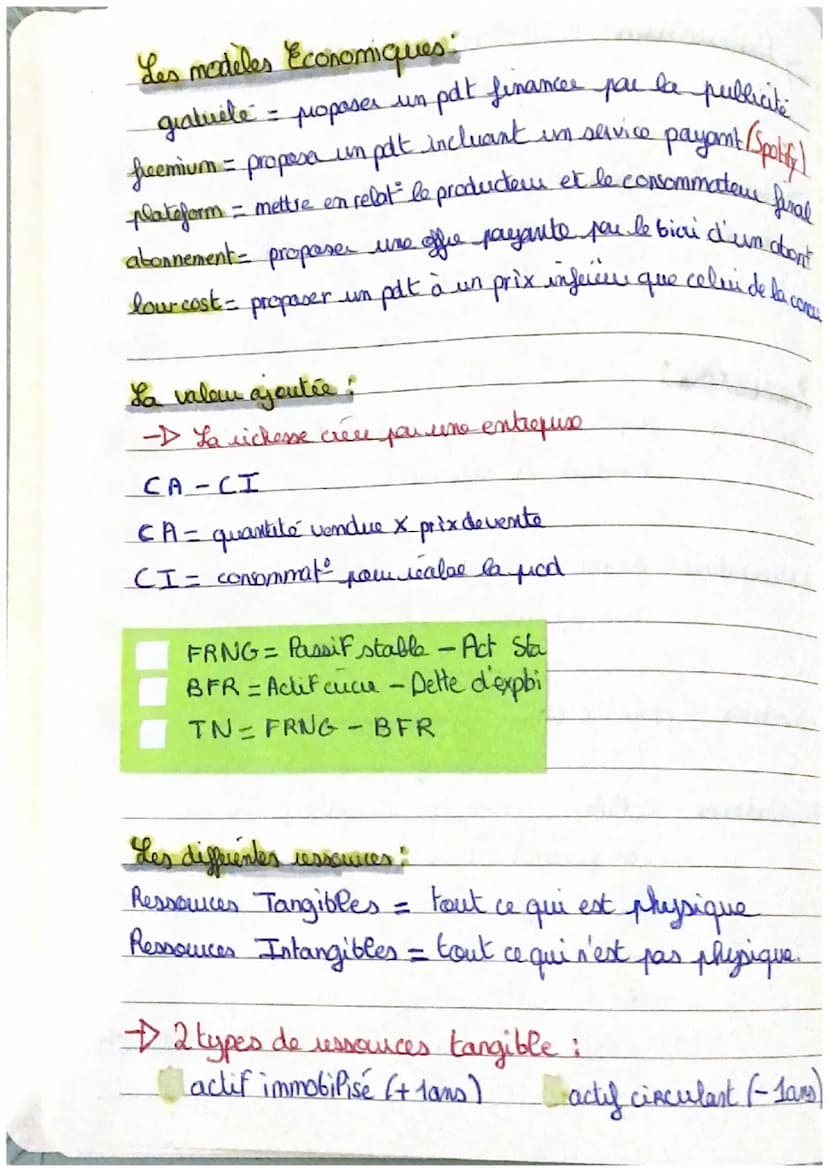 Les modèles Economiques:
gratuité = proposer un pdt financer par la publicité
freemium = proposer un pdt incluant un service payant (Spotify)
plateform = mettre en relat° le producteur et le consommateur final
abonnement = proposer une offre payante par le biai d'un abont
low cost = proposer un pdt à un prix inférieur que celui de la concu
La valeur ajoutée :
→ La richesse créee par une entreprise
CA - CI
CA = quantité vendue x prix de vente
CI = consommat° pour réalisé la prod
FRNG = Passif stable - Act Sta
BFR = Actif circu - Dette d'exploi
TN = FRNG - BFR
Les différentes ressources :
Ressources Tangibles = tout ce qui est physique
Ressources Intangibles = tout ce qui n'est pas physique.
→ 2 types de ressources tangible :
actif immobilisé (+ 1ans) actif circulant (- 1ans)